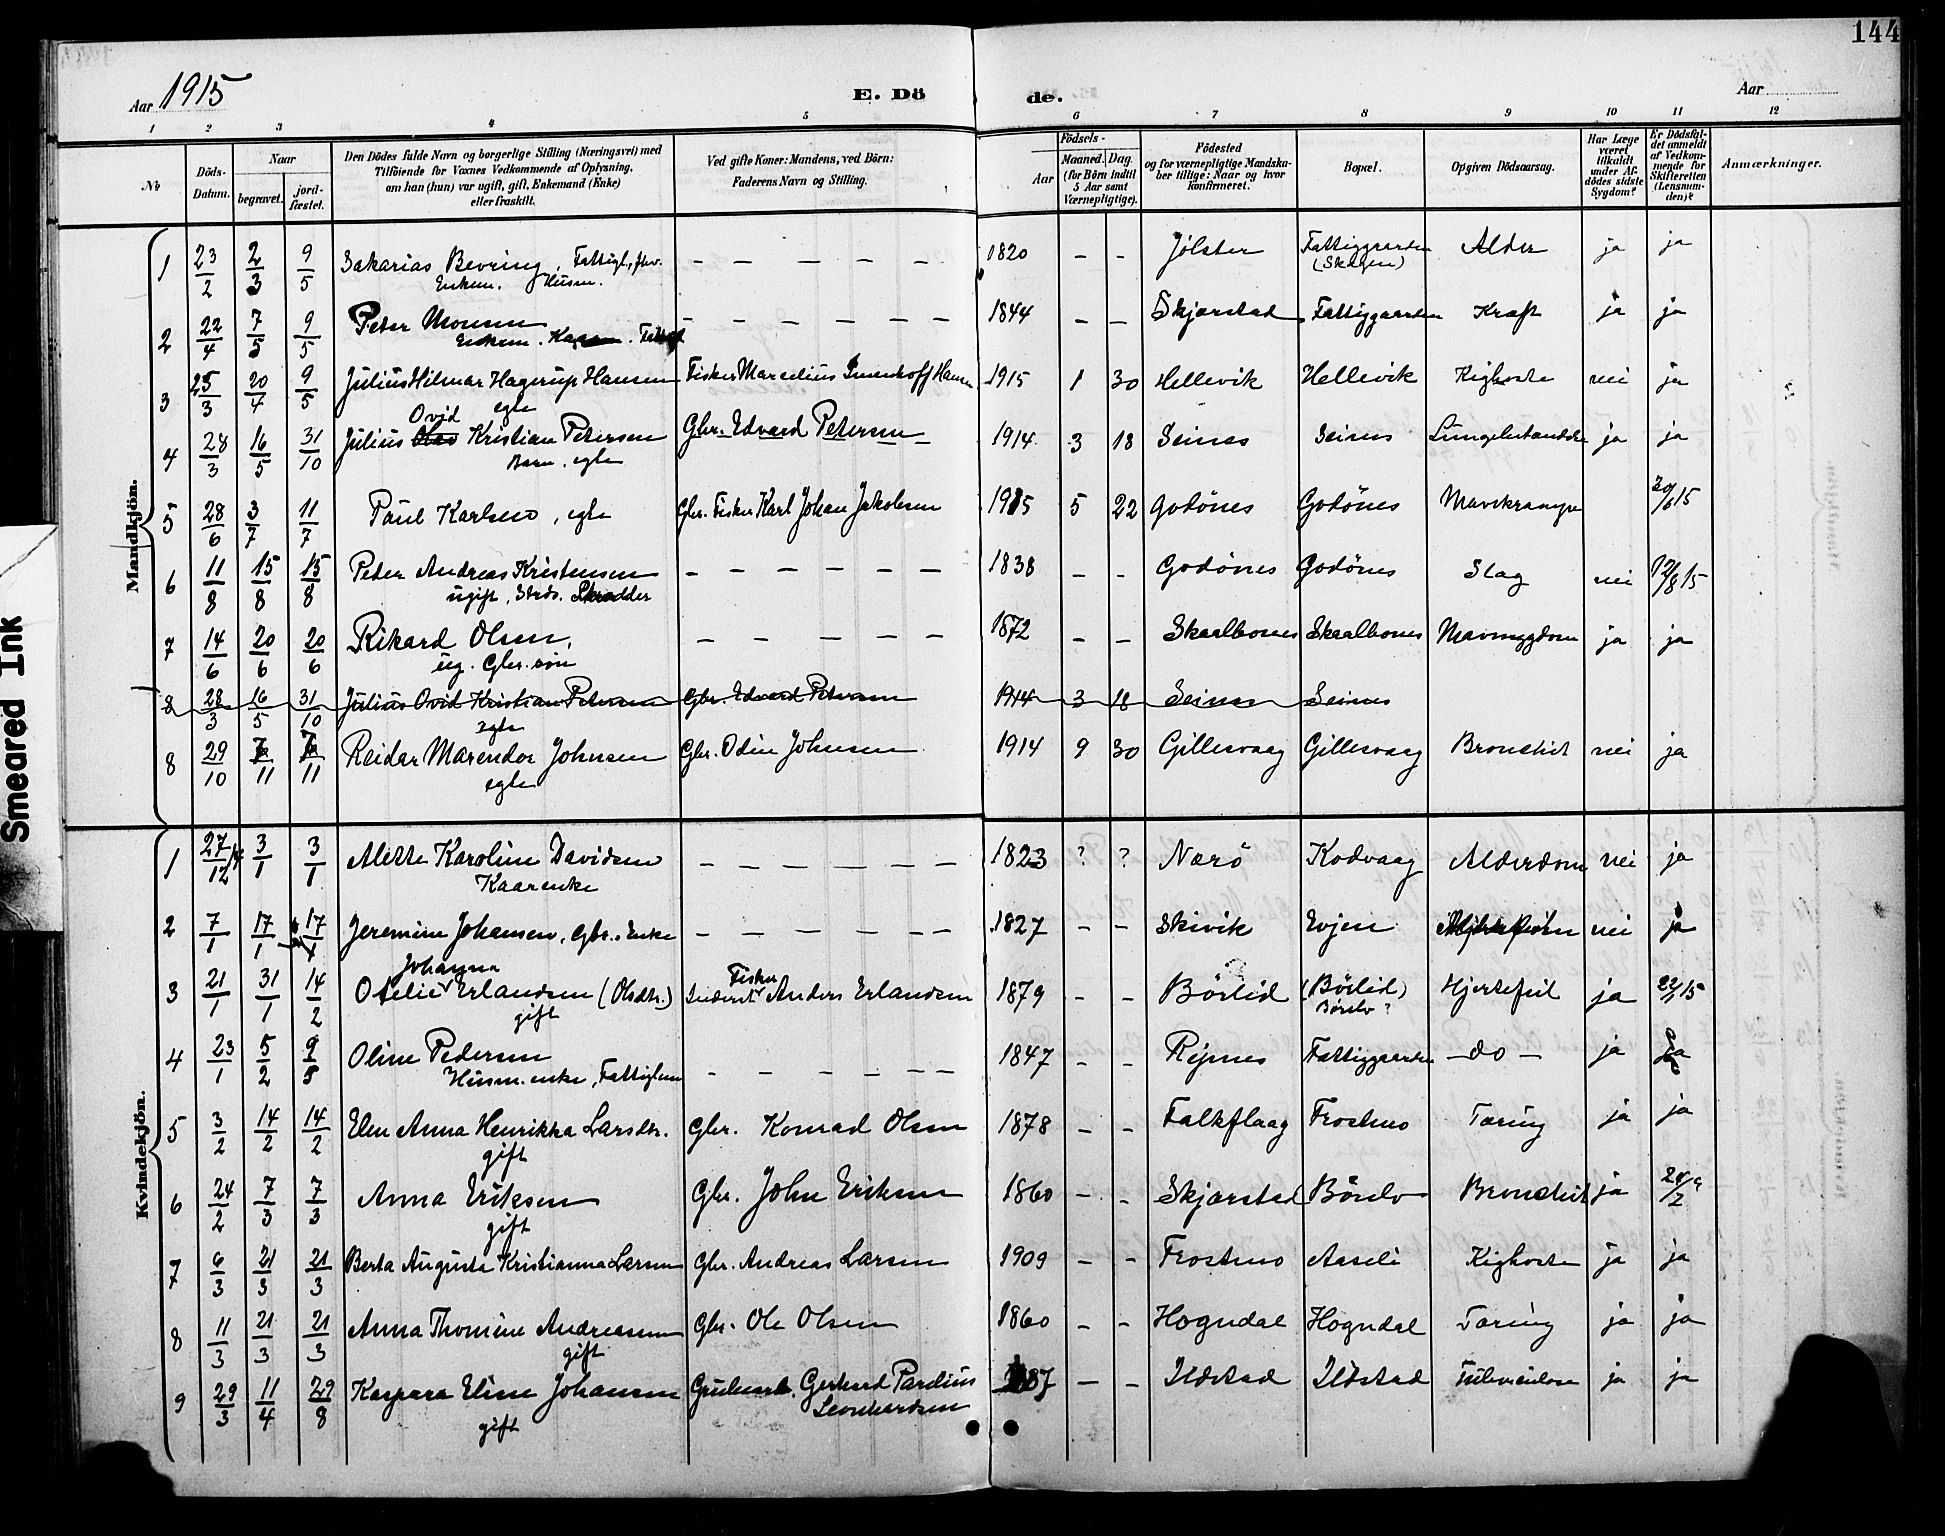 144
Aar 1915 E. Dö de. Aar
1 2 3 4 5 6 7 8 9 10 11 12
No Döds-Datum. Naar begravet. jord-fæstet. Den Dödes fulde Navn og borgerlige Stilling (Næringsvei) med Tilföiende for Voxnes Vedkommende af Oplysning, om han (hun) var ugift, gift, Enkemand (Enke) eller fraskilt. Ved gifte Koner: Mandens, ved Börn: Faderens Navn og Stilling. Födsels- Aar Maaned. Dag. (for Börn indtil 5 Aar samt Værnepligtige). Födested og for værnepligtige Mandskaber tillige: Naar og hvor konfirmeret. Bopæl. Opgiven Dödsaarsag. Har Læge været tilkaldt under Afdödes sidste Sygdom? Er Dödsfaldet anmeldt af Vedkommende for Skifteretten (Lensmanden)? Anmærkninger.
Mandkjön.
1 23/2 2/3 9/5 Sakarias Bevring, Fattigl., – – – – – 1820 – – Jölster Fattiggaarden Alder ja ja
Enkem. Husm. (Skagen)
2 22/4 7/5 9/5 Peter Monsen – – – – – – 1844 – – Skjærstad Fattiggaarden Kræft ja ja
Enkem.
3 25/3 20/4 9/5 Julius Hilmar Hagerup Hansen Fisker Marselius Hansen 1915 1 30 Hellevik Hellevik Kighoste nei ja
egte
Ovid
4 28/3 16/5 31/10 Julius Kristian Petersen Gbr. Edvard Petersen 1914 3 18 Seines Seines Lungebetændelse ja ja
Barn, egte
5 28/6 3/7 11/7 Paul Karlsen, egte Gbr. Fisker Karl Johan Jakobsen 1915 5 22 Godönes Godönes Mavekrampe 30/6 15
6 11/8 15/8 15/8 Peder Andreas Kristensen – – – – – – 1838 – – Godönes Godönes Slag nei 12/8 15
ugift, Skrædder
7 14/6 20/6 20/6 Rikard Olsen, – – – – – 1872 – – Skaalbones Skaalbones Mavesygdom ja ja
ug. Gbr. sön
8 28/3 16/5 31/10 Julius Ovid Kristian Petersen Gbr. Edvard Petersen 1914 3 18 Seines Seines
egte
8 29/10 7/11 7/11 Reidar Marendor Johnsen Gbr. Odin Johnsen 1914 9 30 Gillesvaag Gillesvaag Bronchit nei ja
egte
Kvindekjön.
1 27/12 14 3/1 3/1 Mette Karoline Davidsen – – – – – – 1823 ? ? Nærö Kodvaag Alderdom nei ja
Kaarenke
2 7/1 17/1 17/1 Jeremine Johansen, Gbr. Enke – – – – – – 1827 – – Skivik Evjen nei ja
Johanna Fisker
3 21/1 31/1 14/2 Otelie Erlandsen (Olsdtr.) Inderst Anders Erlandsen 1879 – – Börlid (Börlid) Hjertefeil ja 22/1 15
gift Börelv?
4 23/1 5/2 9/5 Oline Pedersen – – – – – – 1847 – – Ripnes Fattiggaarden – do – ja ja
Husm. enke, Fattiglem
5 3/2 14/2 14/2 Elen Anna Henrikka Larsdtr. Gbr. Konrad Olsen 1878 – – Falkflaag Frostmo Tæring ja ja
gift
6 24/2 7/3 7/3 Anna Eriksen Gbr. John Eriksen 1860 – – Skjærstad Börelv Bronchit ja
gift
7 6/3 21/3 21/3 Berta Augusta Kristianna Larsen Gbr. Andreas Larsen 1909 – – Frostmo Aseli Kighoste ja ja
8 11/3 21/3 21/3 Anna Thomine Andreassen Gbr. Ole Olsen 1860 – – Hogndal Hogndal Tæring ja ja
gift
9 29/3 11/4 29/8 Kaspara Elise Johansen Grubearb. Gerhard Pardius 87 – – Ildstad Ildstad Tuberculose ja ja
gift Leonhardsen
Smeared Ink